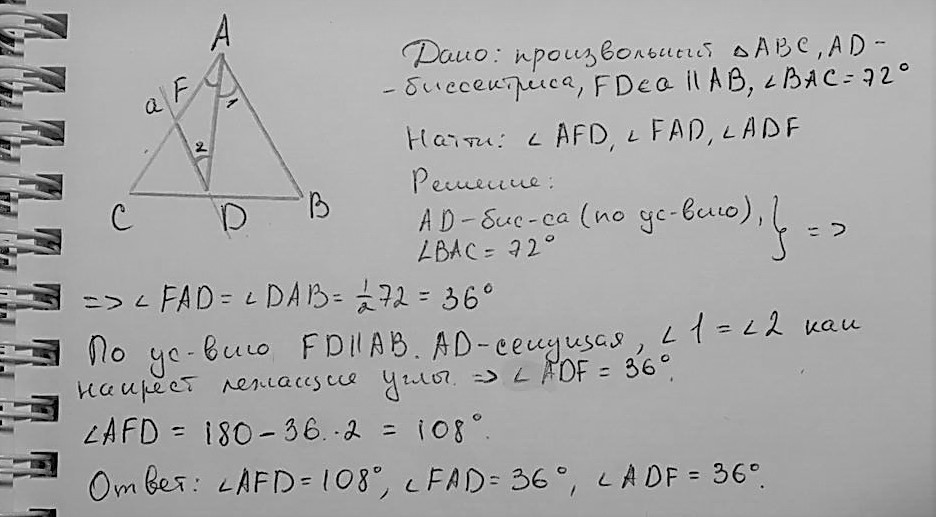 A
F
a
1
2
C
D
B
Дано: произвольный △ABC, AD-
-биссектриса, FD∈a ∥ AB, ∠BAC = 72°
Найти: ∠AFD, ∠FAD, ∠ADF
Решение:
AD-бис-са (по ус-вию), } =>
∠BAC = 72°
=> ∠FAD = ∠DAB = 1/2 72 = 36°
По ус-вию FD∥AB. AD-секущая, ∠1 = ∠2 как
накрест лежащие углы. => ∠ADF = 36°.
∠AFD = 180 - 36 · 2 = 108°.
Ответ: ∠AFD = 108°, ∠FAD = 36°, ∠ADF = 36°.